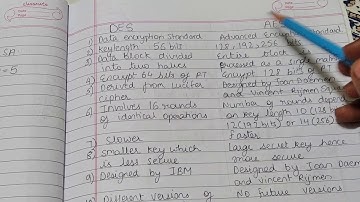 classmate
SA
=5
DES
1) Data encryption Standard Advanced Encryption Standard
2) Keylength 56 bit 128, 192, 256 bits
3) Data block divided Entire block
into two halves processed as a single matrix
4) Encrypt 64 bits of PT Encrypt 128 bits of PT
5) Derived from Lucifer Designed by Joan Daemen
cipher and Vincent Rijmen
6) Involves 16 rounds Number of rounds depend
of identical operations on key length 10 (128 bits)
12 (192 bits) or 14 (256)
7) Slower Faster
8) Smaller key which Large secret key hence
is less secure more secure
9) Designed by IBM Designed by Joan Daemen
and Vincent Rijmen
Different versions of No future versions